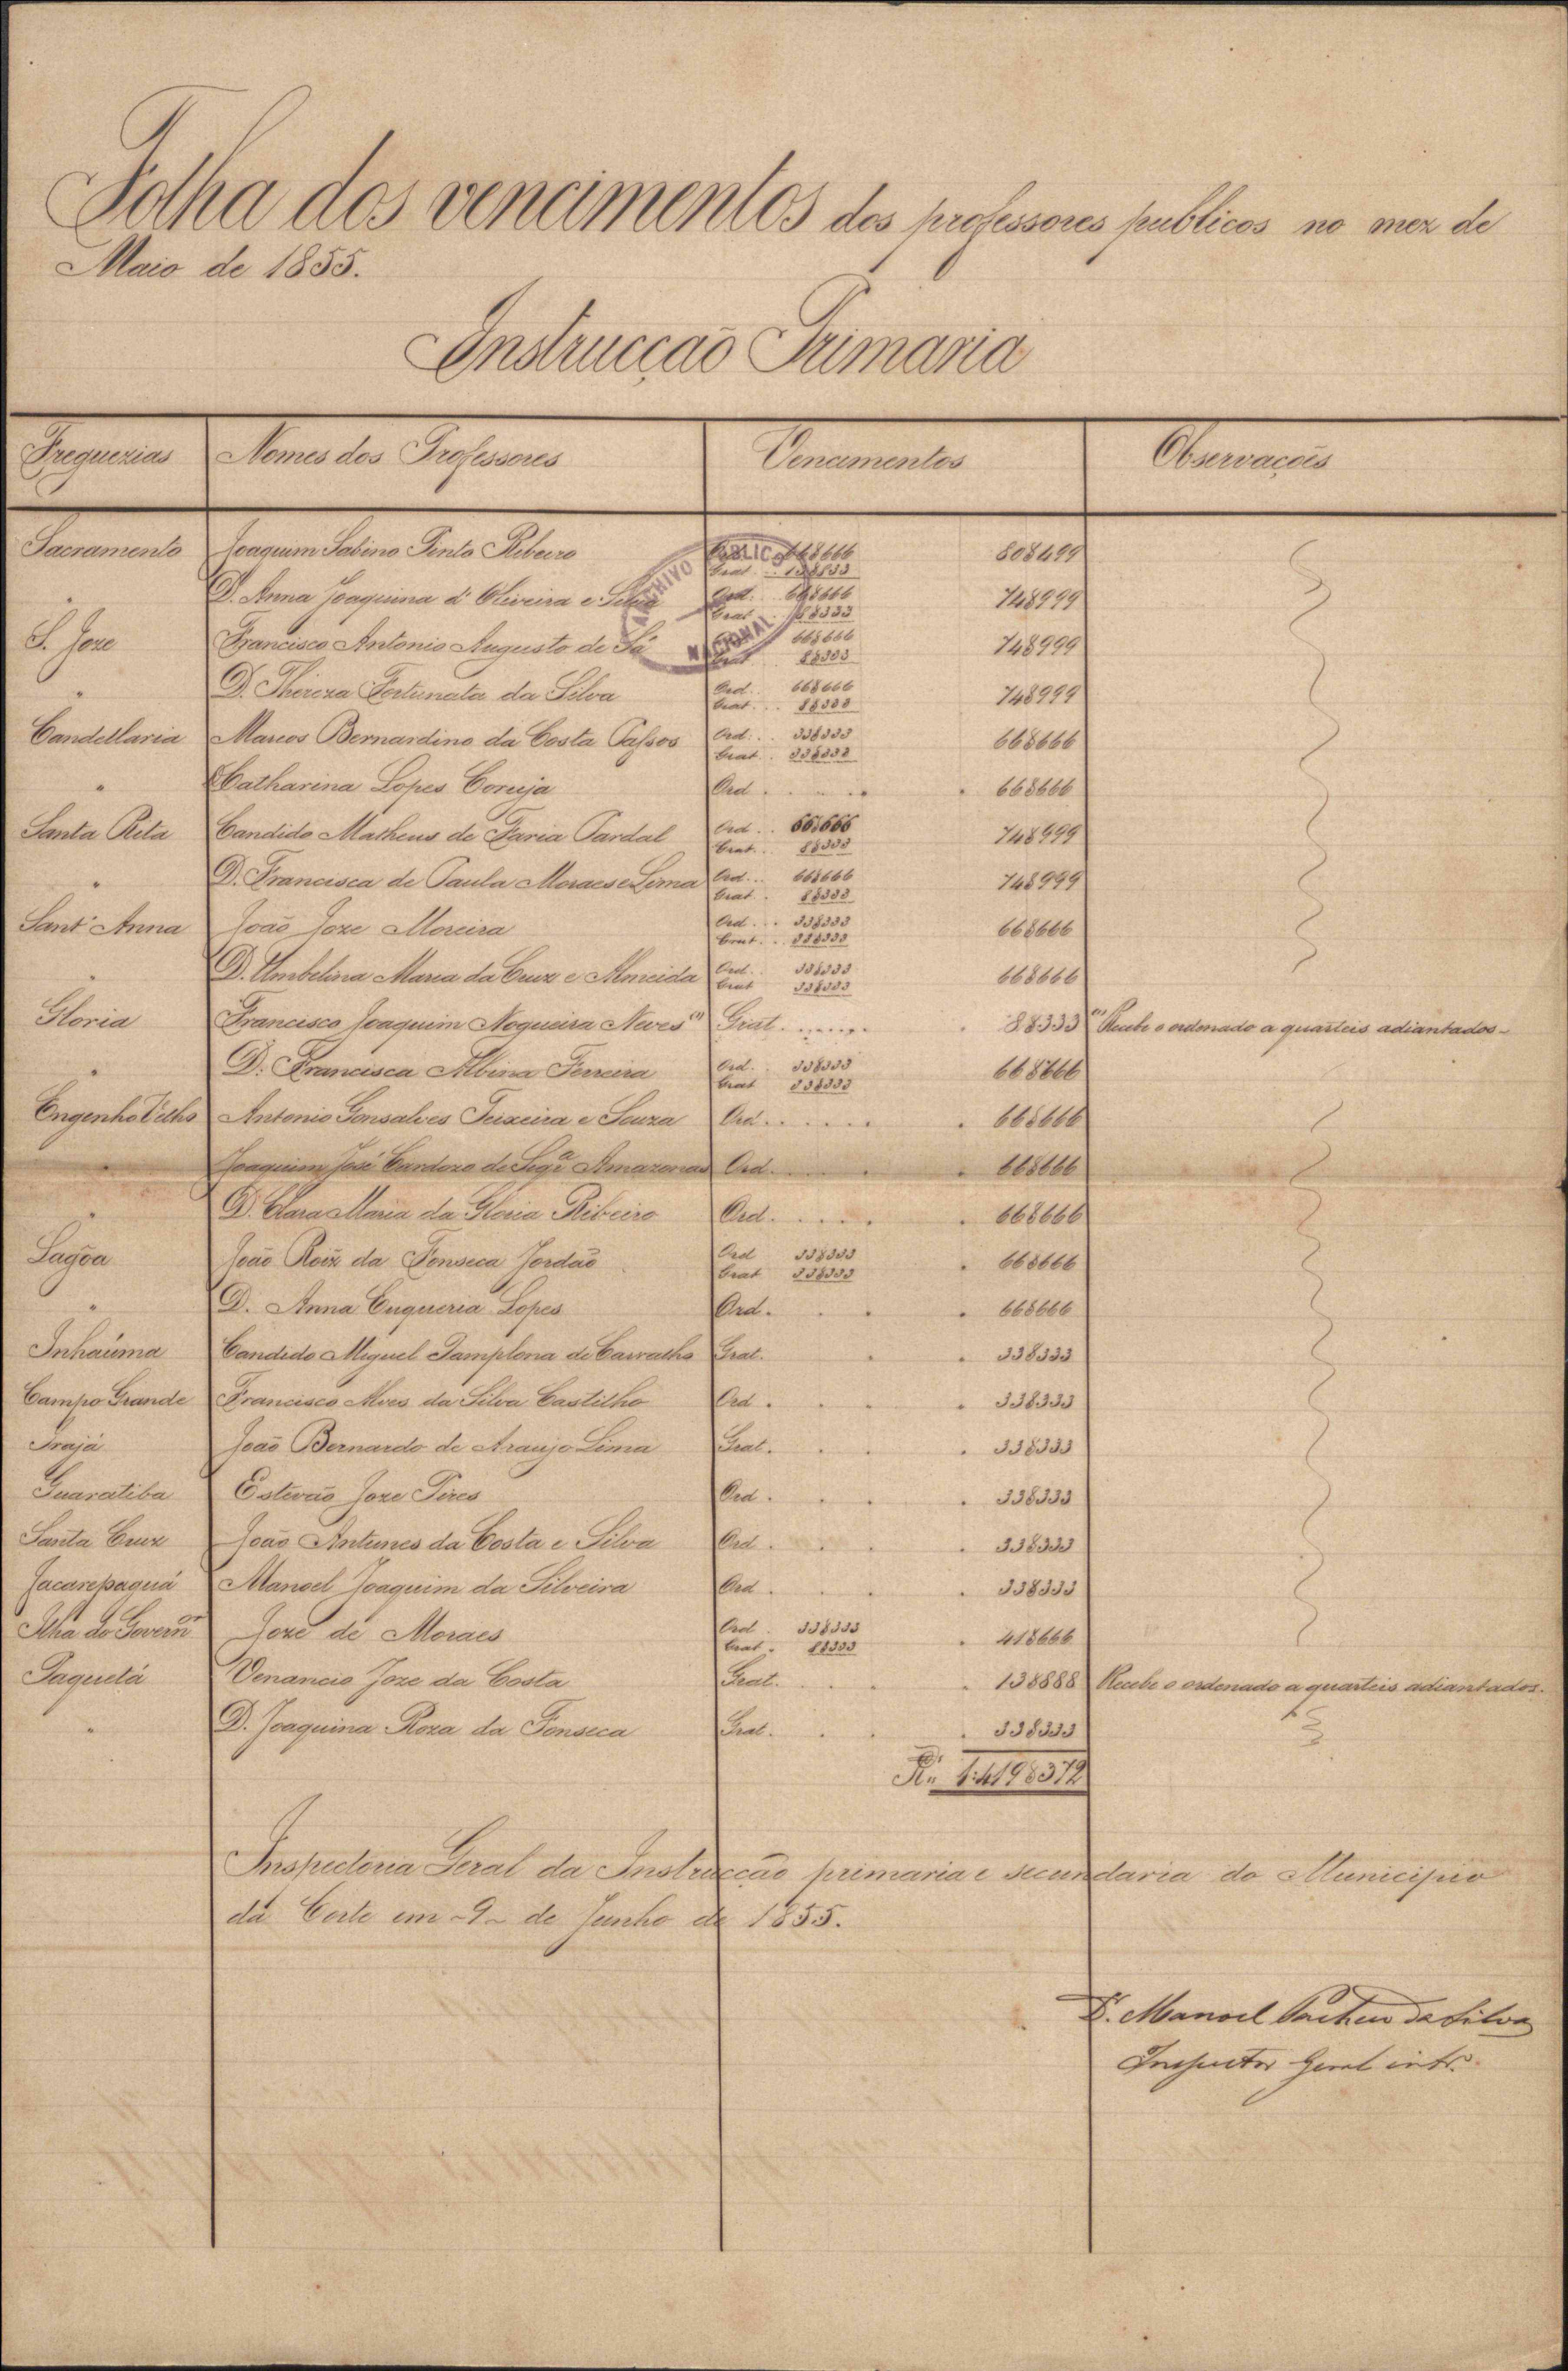 Folha dos vencimentos dos professores publicos no mez de
Maio de 1855.
Instrucção Primaria
Freguezias Nomes dos Professores Vencimentos Observações
Sacramento Joaquim Sabino Pinto Ribeiro Ord. 66$666 Grat. 13$833 80$499
" D. Anna Joaquina d'Oliveira e Silva Ord. 66$666 Grat. 8$333 74$999
S. Joze Francisco Antonio Augusto de Sá 66$666 Grat. 8$333 74$999
" D. Thereza Fortunata da Silva Ord. 66$666 Grat. 8$333 74$999
Candellaria Marcos Bernardino da Costa Passos Ord. 33$333 Grat. 33$333 66$666
" Catharina Lopes Coruja Ord. 66$666
Santa Rita Candido Matheus de Faria Pardal Ord. 66$666 Grat. 8$333 74$999
" D. Francisca de Paula Moraes e Lima Ord. 66$666 Grat. 8$333 74$999
Sant'Anna João Joze Moreira Ord. 33$333 Grat. 33$333 66$666
" D. Umbelina Maria da Cruz e Almeida Ord. 33$333 Grat 33$333 66$666
Gloria Francisco Joaquim Nogueira Neves (1) Grat. 8$333 (1) Recebe o ordenado a quarteis adiantados-
" D. Francisca Albina Ferreira Ord. 33$333 Grat 33$333 66$666
Engenho Velho Antonio Gonsalves Teixeira e Souza Ord. 66$666
" Joaquim José Cardozo de Seqª Amazonas Ord. 66$666
" D. Clara Maria da Gloria Ribeiro Ord. 66$666
Lagôa João Roiz da Fonseca Jordão Ord 33$333 Grat 33$333 66$666
" D. Anna Euqueria Lopes Ord. 66$666
Inhaúma Candido Miguel Pamplona de Carvalho Grat. 33$333
Campo Grande Francisco Alves da Silva Castilho Ord. 33$333
Irajá João Bernardo de Araujo Lima Grat. 33$333
Guaratiba Estevão Joze Pires Ord. 33$333
Santa Cruz João Antunes da Costa e Silva Ord. 33$333
Jacarepaguá Manoel Joaquim da Silveira Ord. 33$333
Ilha do Governor Joze de Moraes Ord. 33$333 Grat. 8$333 41$666
Paquetá Venancio Joze da Costa Grat. 13$888 Recebe o ordenado a quarteis adiantados.
" D. Joaquina Roza da Fonseca Grat. 33$333
Rs. 1:419$372
Inspectoria Geral da Instrucção primaria e secundaria do Municipio
da Corte em -9- de Junho de 1855.
Dr. Manoel Pacheco da Silva
Inspector Geral intº.
ARCHIVO PUBLICO NACIONAL